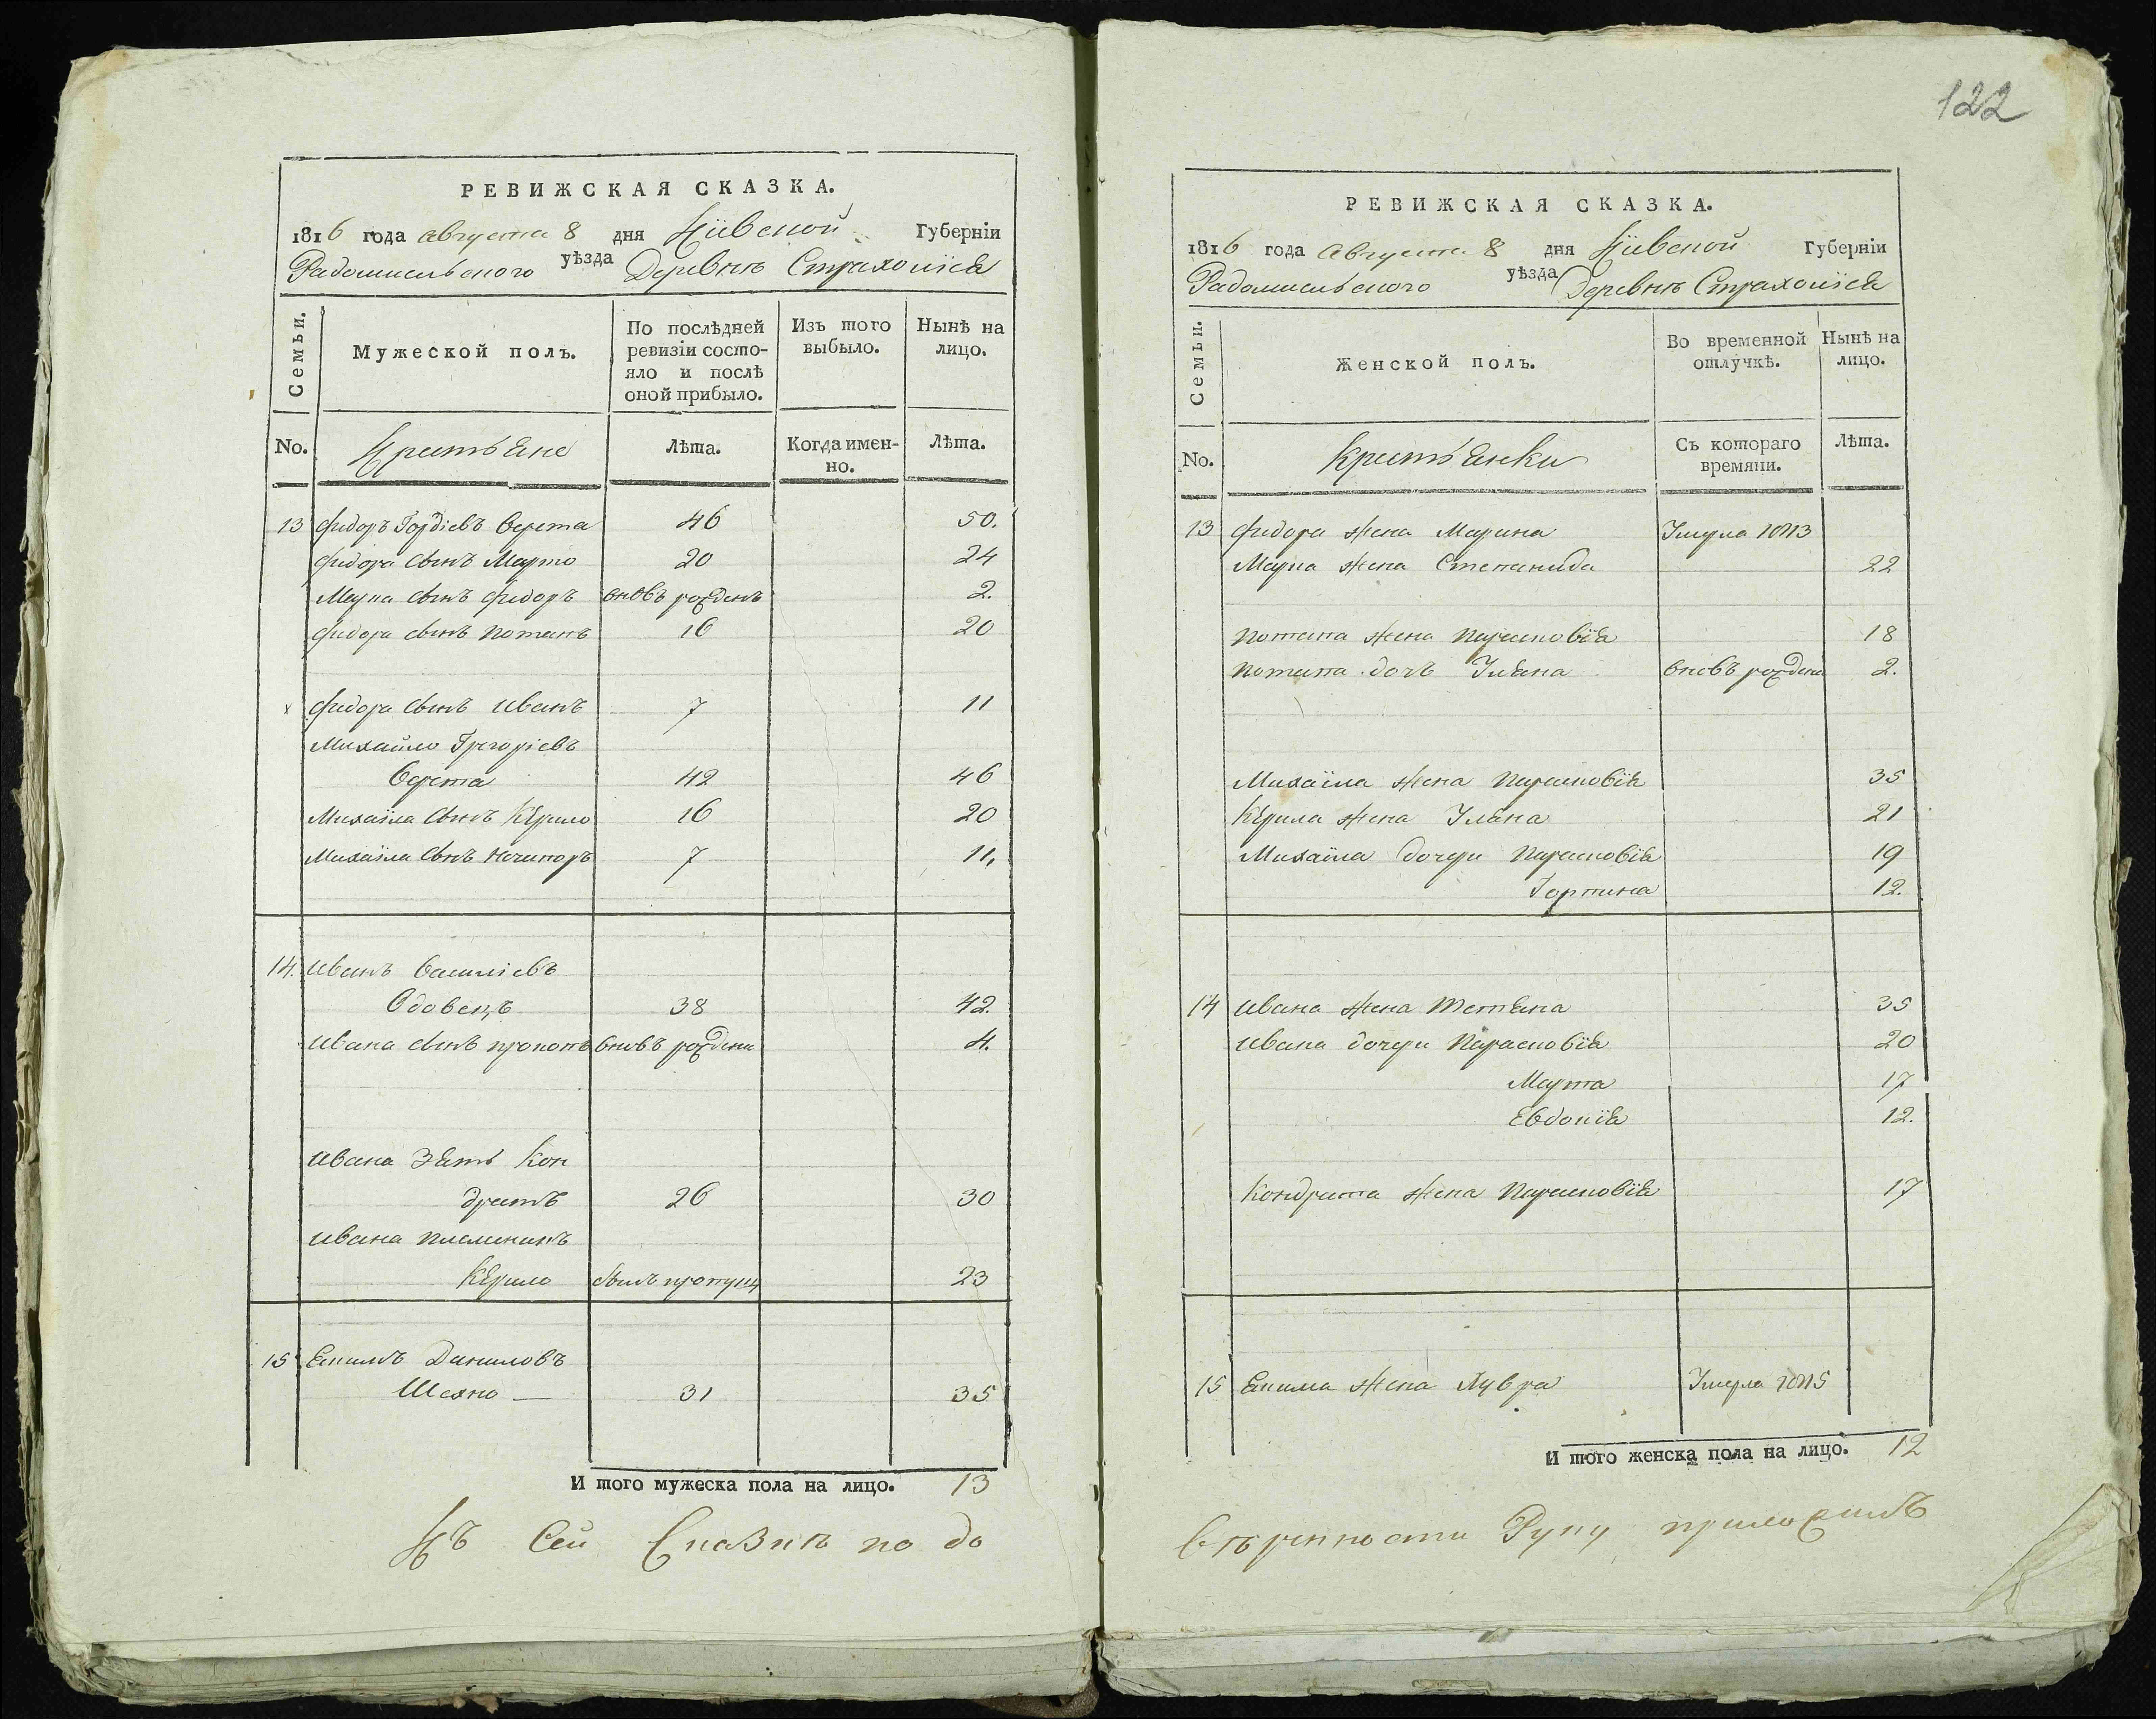 122
РЕВИЖСКАЯ СКАЗКА.
1816 года августа 8 дня Кіивской Губерніи
Радомисльского уѣзда Деревнѣ Страхолися
Семьи.
Мужеской полъ.
По послѣдней ревизіи состо-
яло и послѣ
оной прибыло.
Изъ того выбыло.
Нынѣ на лицо.
No.
Крестьяне
Лѣта.
Когда имен-
но.
Лѣта.
13 Федоръ Гордіевъ Верета 46 50.
Федора сынъ Марко 20 24
Марка сынъ Федоръ вновь рожденъ 2.
Федора сынъ Потапъ 16 20
Федора сынъ Иванъ 7 11
Михайло Григоріевъ
Верета 42 46
Михайла сынъ Кѣрило 16 20
Михайла сынъ Нечипоръ 7 11
14. Иванъ Василіевъ
Вдовецъ 38 42.
Ивана сынъ Прокопъ вновь рожденъ 4.
Ивана Зять Кон
дратъ 26 30
Ивана племеникъ
Кѣрило былъ пропущ 23
15 Екимъ Даниловъ
Шахно — 31 35
И того мужеска пола на лицо. 13
Къ Сей Сказкѣ по до
РЕВИЖСКАЯ СКАЗКА.
1816 года Августа 8 дня Кіивской Губерніи
Радомисльского уѣзда Деревнѣ Страхолися
Семьи.
Женской полъ.
Во временной
отлучкѣ.
Нынѣ на
лицо.
No.
Крестьянки
Съ котораго
времяни.
Лѣта.
13 Федора жена Марина Умерла 1813
Марка жена Степанида 22
Потапа жена Парасковія 18
Потапа дочь Уляна вновь рождена 2.
Михайла жена Парасковія 35
Кѣрила жена Уляна 21
Михайла дочери Парасковія 19
Горпина 12.
14 Ивана жена Тетяна 35
Ивана дочери Парасковія 20
Марта 17
Евдокія 12.
Кондрата жена Парасковія 17
15 Екима жена Лувра Умерла 1815
И того женска пола на лицо. 12
вѣренности Руку приложилъ